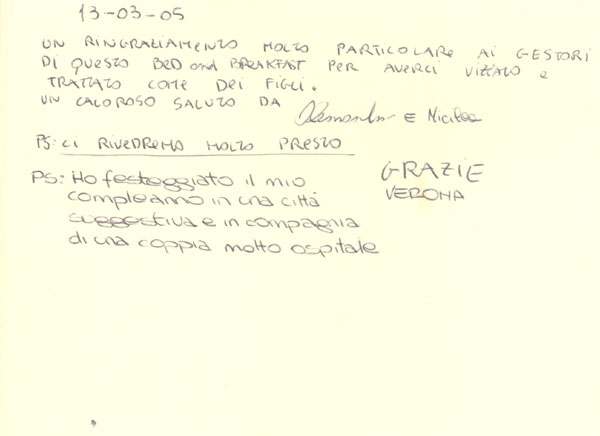 13-03-05
UN RINGRAZIAMENTO MOLTO PARTICOLARE AI GESTORI
DI QUESTO BED and BREAKFAST PER AVERCI VIZIATO e
TRATTATO COME DEI FIGLI.
UN CALOROSO SALUTO DA E
PS: CI RIVEDREMO MOLTO PRESTO
PS: Ho festeggiato il mio
compleanno in una città
suggestiva e in compagnia
di una coppia molto ospitale
GRAZIE
VERONA